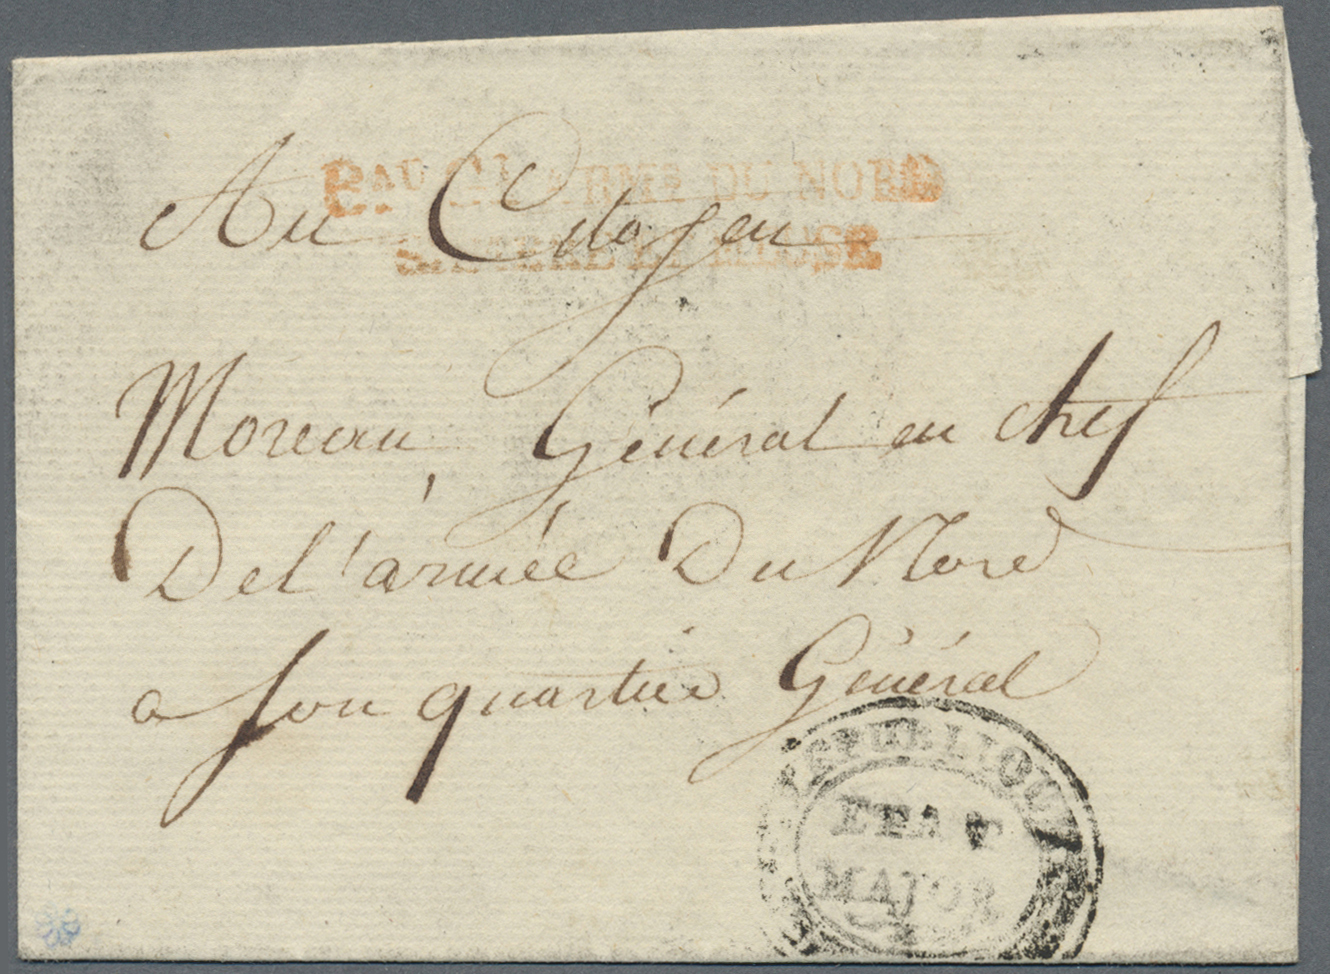 Bau Gl ARMs DU NORD
SAMBRE ET MEUSE
Au Citoyen
Moreau Général en chef
De l'armée Du Nord
a son quartier Général
REPUBLIQUE
ETAT
MAJOR